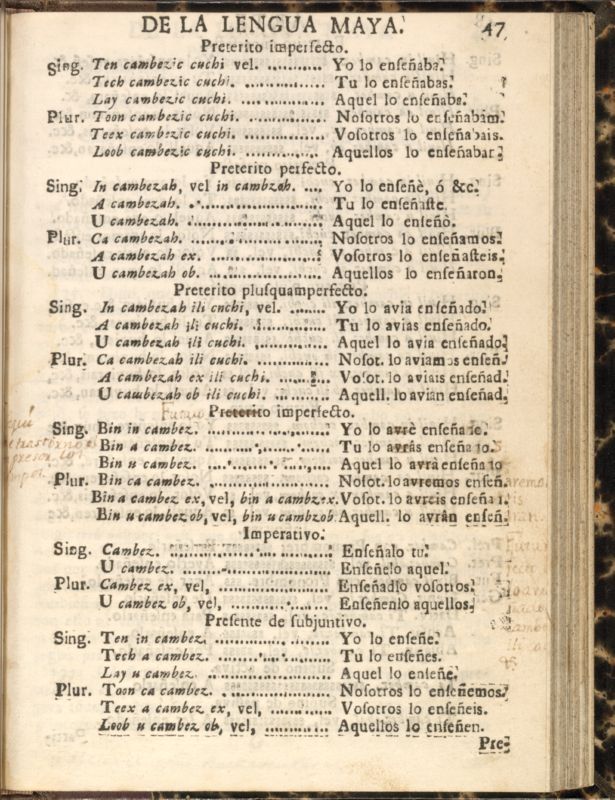 DE LA LENGUA MAYA. 47
Preterito imperfecto.
Sing. Ten cambezic cuchi vel. ........... Yo lo enſeñaba.
Tech cambezic cuchi. ................ Tu lo enſeñabas.
Lay cambezic cuchi. ................. Aquel lo enſeñaba.
Plur. Toon cambezic cuchi. ................ Noſotros lo enſeñabam.
Teex cambezic cuchi. ................ Voſotros lo enſeñabais.
Loob cambezic cuchi. ............... Aquellos lo enſeñaban.
Preterito perfecto.
Sing. In cambezah, vel in cambzah. .... Yo lo enſeñè, ó &c.
A cambezah. ........................ Tu lo enſeñaſte.
U cambezah. ........................ Aquel lo enſeñò.
Plur. Ca cambezah. ........................ Noſotros lo enſeñamos.
A cambezah ex. ..................... Voſotros lo enſeñaſteis.
U cambezah ob. ..................... Aquellos lo enſeñaron.
Preterito pluſquamperfecto.
Sing. In cambezah ili cuchi, vel. ....... Yo lo avia enſeñado.
A cambezah ili cuchi. .............. Tu lo avias enſeñado.
U cambezah ili cuchi. .............. Aquel lo avia enſeñado.
Plur. Ca cambezah ili cuchi. .............. Noſot. lo aviamos enſeñ.
A cambezah ex ili cuchi. ......... Voſot. lo aviais enſeñad.
U cambezah ob ili cuchi. ......... Aquell. lo avian enſeñad.
Futuro
Preterito imperfecto.
Sing. Bin in cambez. ..................... Yo lo avrè enſeña
Bin a cambez. ..................... Tu lo avrâs enſeña
Bin u cambez. ..................... Aquel lo avrà enſeña
Plur. Bin ca cambez. ..................... Noſot. lo avremos enſeñ.
Bin a cambez ex, vel, bin a cambzex. Voſot. lo avreis enſeña
Bin u cambez ob, vel, bin u cambzob Aquell. lo avrân enſeñ.
Imperativo.
Sing. Cambez. ........................... Enſeñalo tu.
U cambez. .......................... Enſeñelo aquel.
Plur. Cambez ex, vel, .................... Enſeñadlo voſotros.
U cambez ob, vel, .................. Enſeñenlo aquellos.
Preſente de ſubjuntivo.
Sing. Ten in cambez. ..................... Yo lo enſeñe.
Tech a cambez. ..................... Tu lo enſeñes.
Lay u cambez. ...................... Aquel lo enſeñe.
Plur. Toon ca cambez. .................... Noſotros lo enſeñemos.
Teex a cambez ex, vel, ............ Voſotros lo enſeñeis.
Loob u cambez ob, vel, ............ Aquellos lo enſeñen.
Pre-